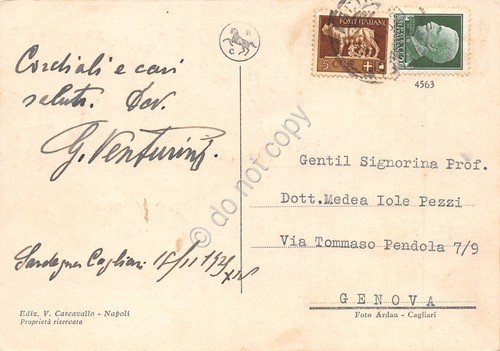 Cordiali e cari
saluti. Dev.
G. Venturini
Sardegna Cagliari
Ediz. V. Carcavallo - Napoli
Proprietà riservata
C R
POSTE ITALIANE
5 CENT
4563
Gentil Signorina Prof.
Dott.Medea Iole Pezzi
Via Tommaso Pendola 7/9
GENOVA
Foto Ardau - Cagliari
© do not copy